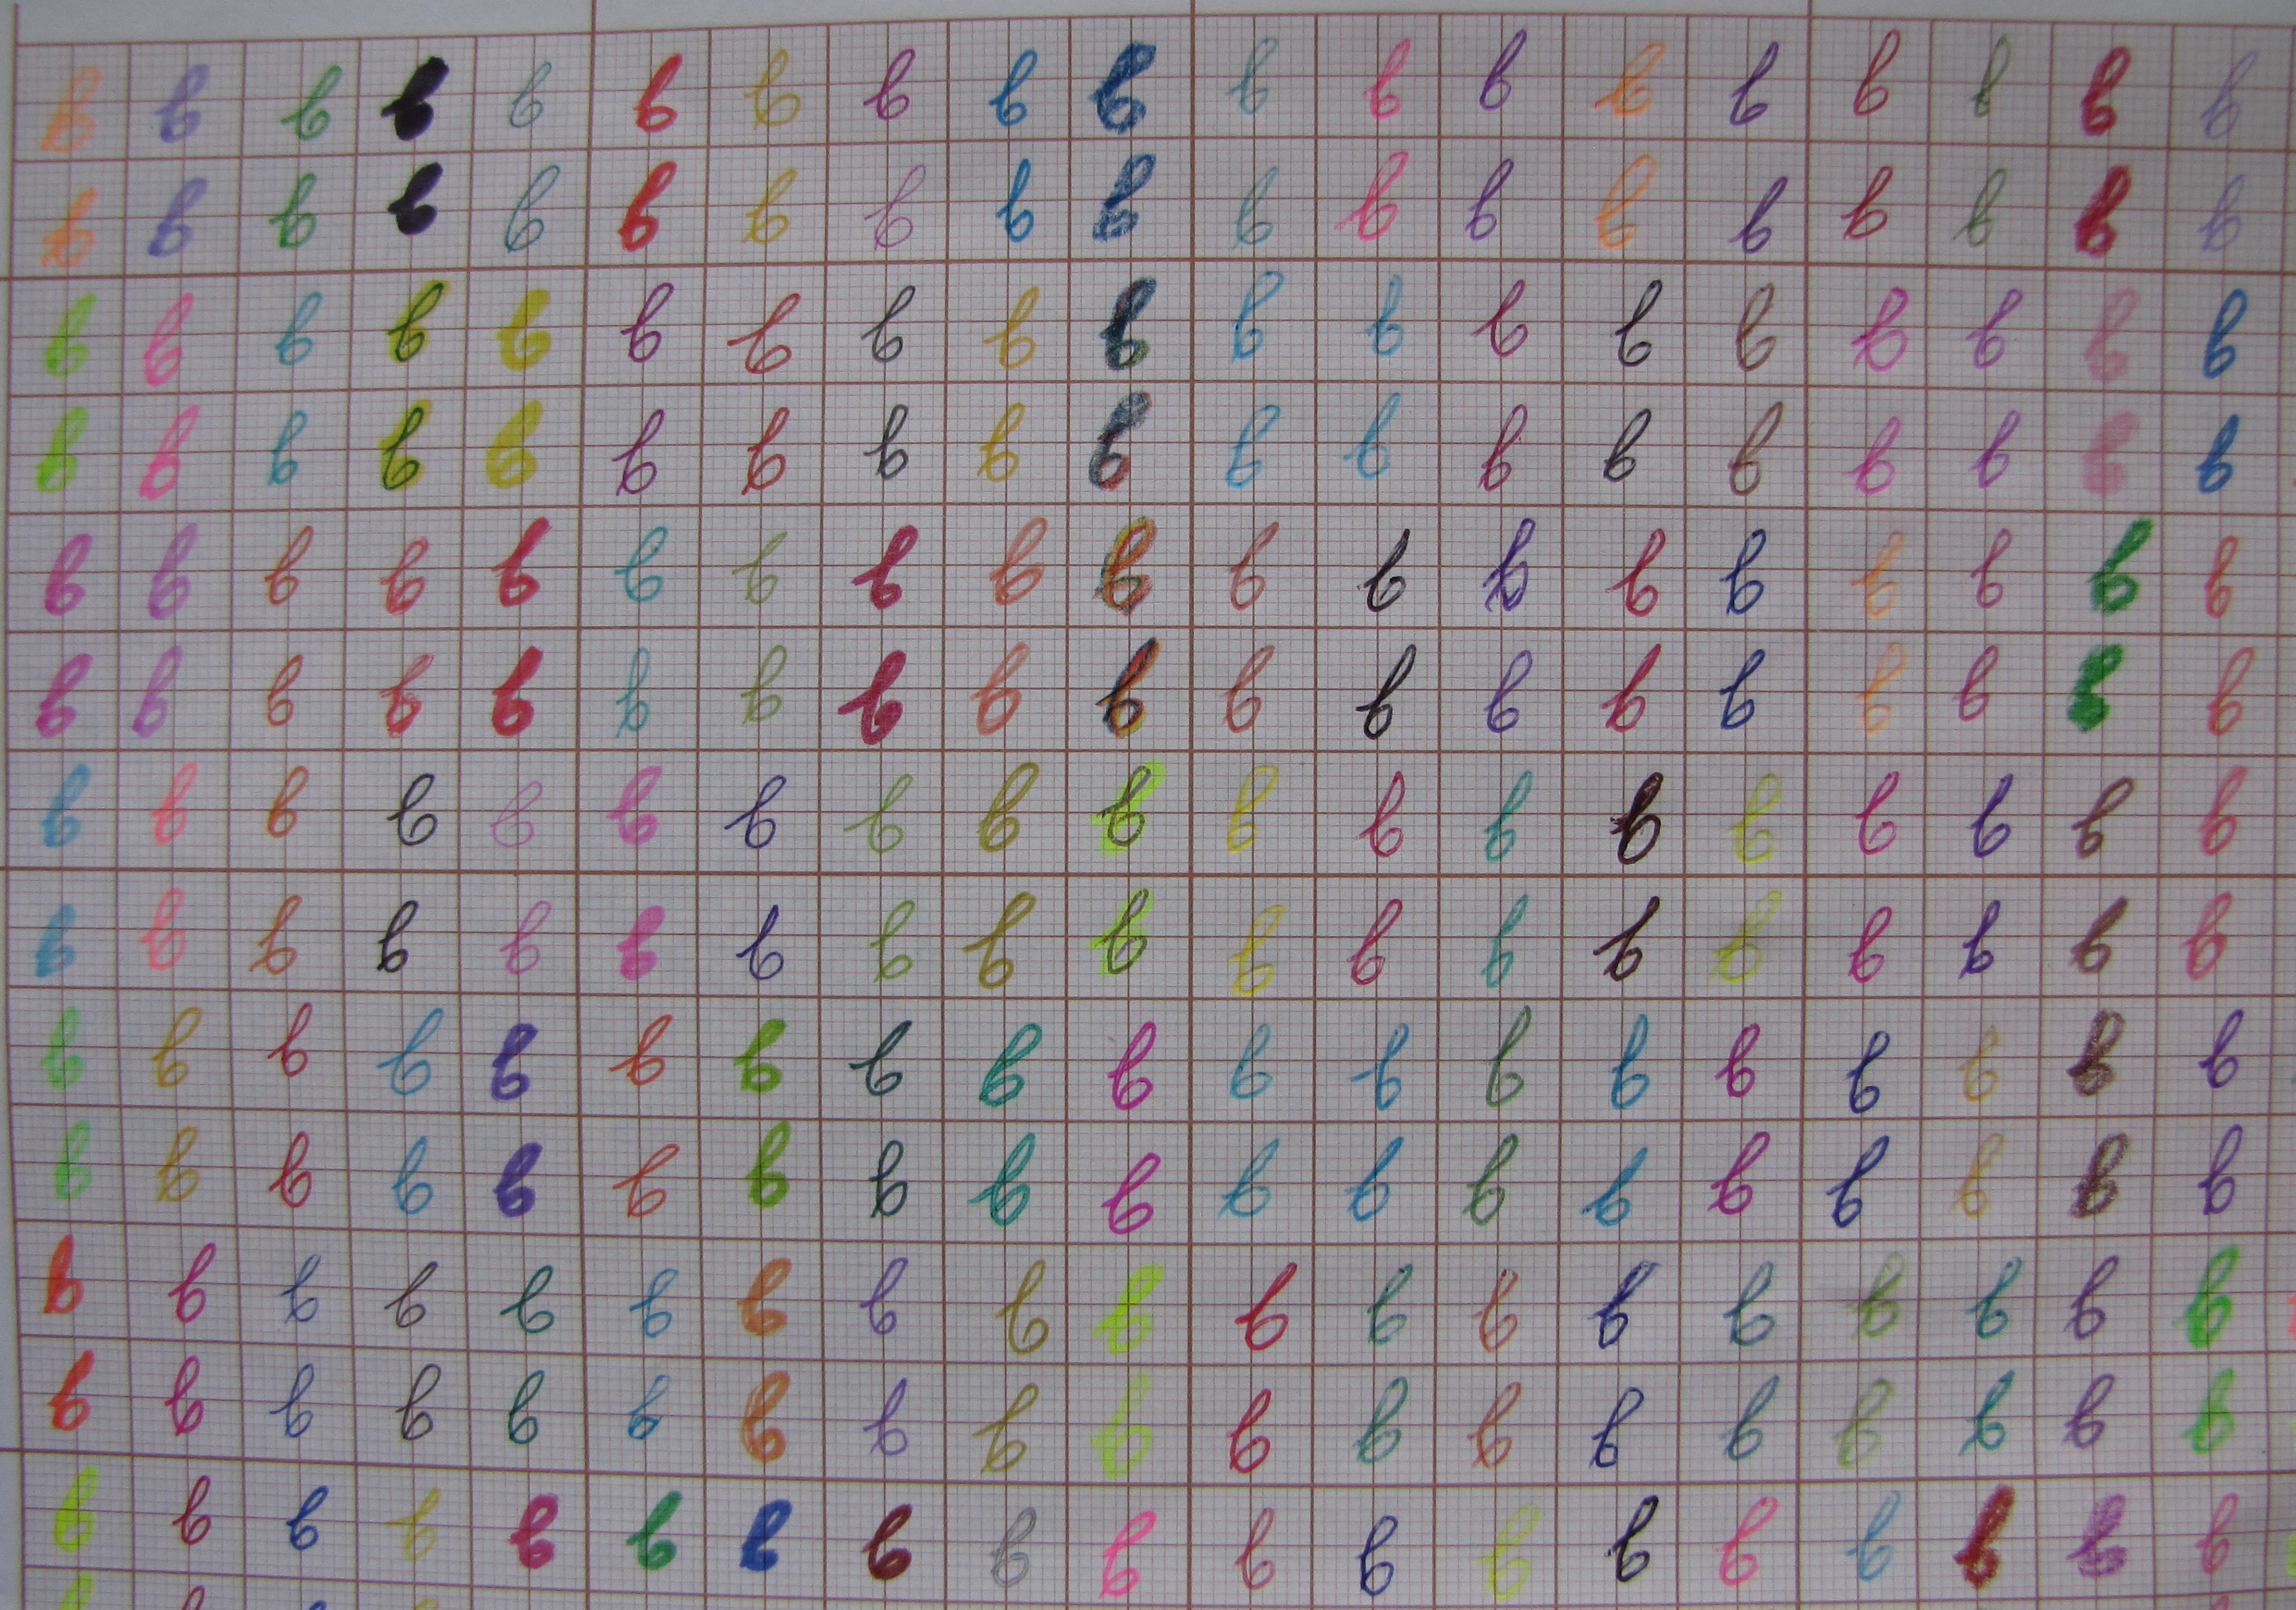 b b b b b b b b b b b b b b b b b b b
b b b b b b b b b b b b b b b b b b b
b b b b b b b b b b b b b b b b b b b
b b b b b b b b b b b b b b b b b b b
b b b b b b b b b b b b b b b b b b b
b b b b b b b b b b b b b b b b b b b
b b b b b b b b b b b b b b b b b b b
b b b b b b b b b b b b b b b b b b b
b b b b b b b b b b b b b b b b b b b
b b b b b b b b b b b b b b b b b b b
b b b b b b b b b b b b b b b b b b b
b b b b b b b b b b b b b b b b b b b
b b b b b b b b b b b b b b b b b b b